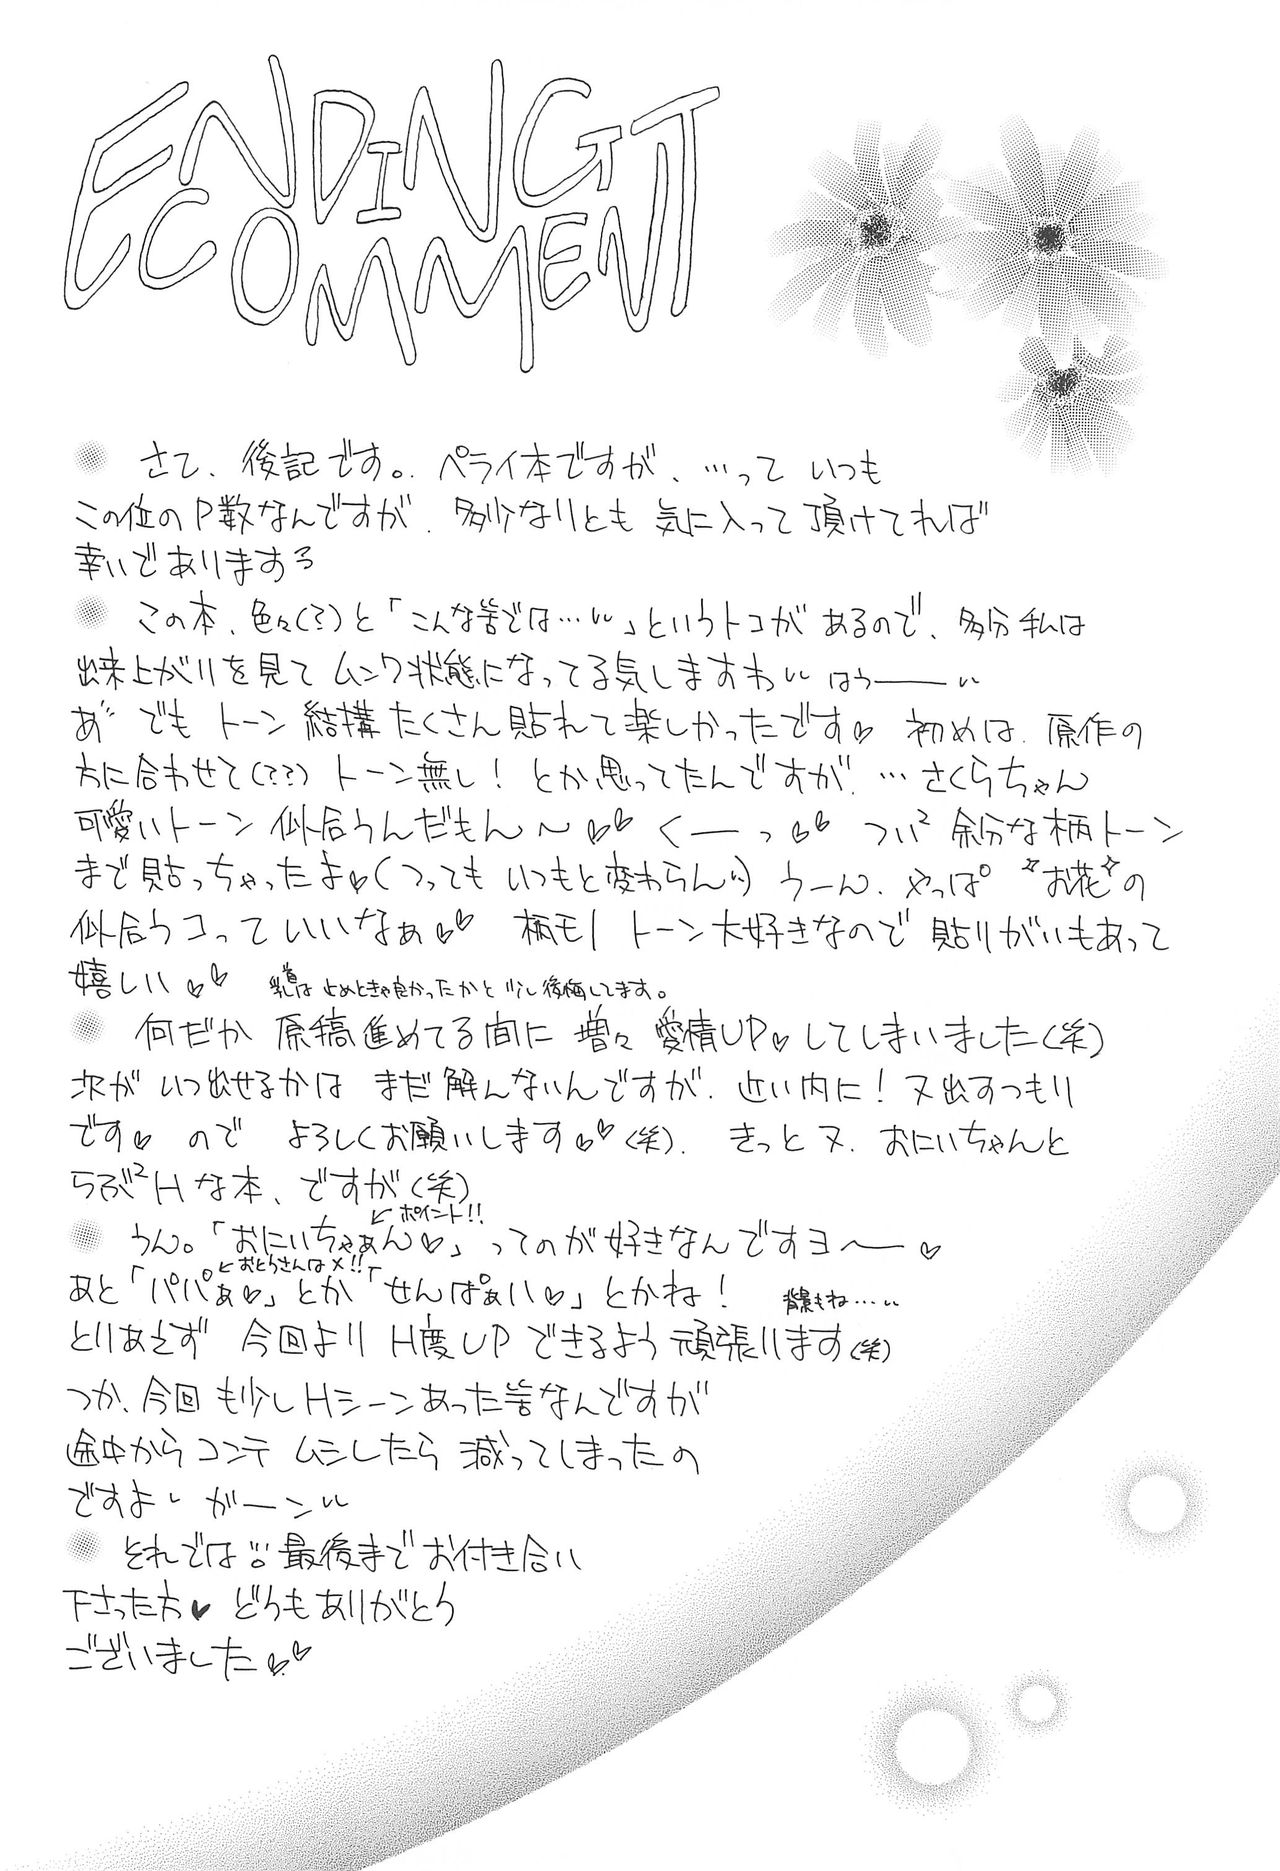 ENDING
COMMENT
さて、後記です。ペライ本ですが、…って いつも
この位のP数なんですが、多少なりとも 気に入って頂けてれば
幸いであります
この本、色々(?)と「こんな筈では…」というトコがあるので、多分私は
出来上がりを見て ムンク状態になってる気しますわ はうー
あ゛でも トーン 結構たくさん貼れて楽しかったです♡ 初めは、原作の
方に合わせて(??) トーン無し! とか思ってたんですが、…さくらちゃん
可愛いトーン 似合うんだもん～♡♡ くーっ♡♡ つい² 余分な柄トーン
まで貼っちゃったよ♡(つっても いつもと変わらん) うーん、やっぱ "お花"の
似合うコっていいなぁ♡♡ 柄モノ トーン大好きなので 貼りがいもあって
嬉しい♡♡ 乳首は止めときゃ良かったかと少し後悔してます。
何だか 原稿進めてる間に 増々 愛情UP♡してしまいました(笑)
次が いつ出せるかは まだ解んないんですが、近い内に! 又出すつもり
です♡ ので よろしくお願いします♡♡(笑)、 きっと又、おにいちゃんと
らぶ²Hな本、ですが(笑)
←ポイント!!
うん。「おにいちゃぁん♡」ってのが好きなんですヨ～ー♡
←おとうさんはメ!!
あと「パパぁ♡」とか「せんぱぁい♡」とかね! 背景もね…
とりあえず 今回より H度UPできるよう頑張ります(笑)
つか、今回 も少しHシーンあった筈なんですが
途中からコンテ ムシしたら 減ってしまったの
ですよ がーン
それでは 最後までお付き合い
下さった方♥ どうもありがとう
ございました♡♡